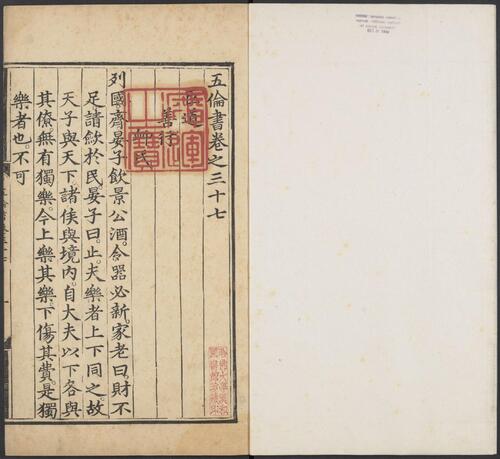 五倫書卷之三十七
臣道
善行
衈民
列國齊晏子飲景公酒。令器必新。家老曰。財不
足。請歛於民。晏子曰。止。夫樂者上下同之。故
天子與天下。諸侯與境內。自大夫以下各與
其僚。無有獨樂。今上樂其樂。下傷其費。是獨
樂者也。不可